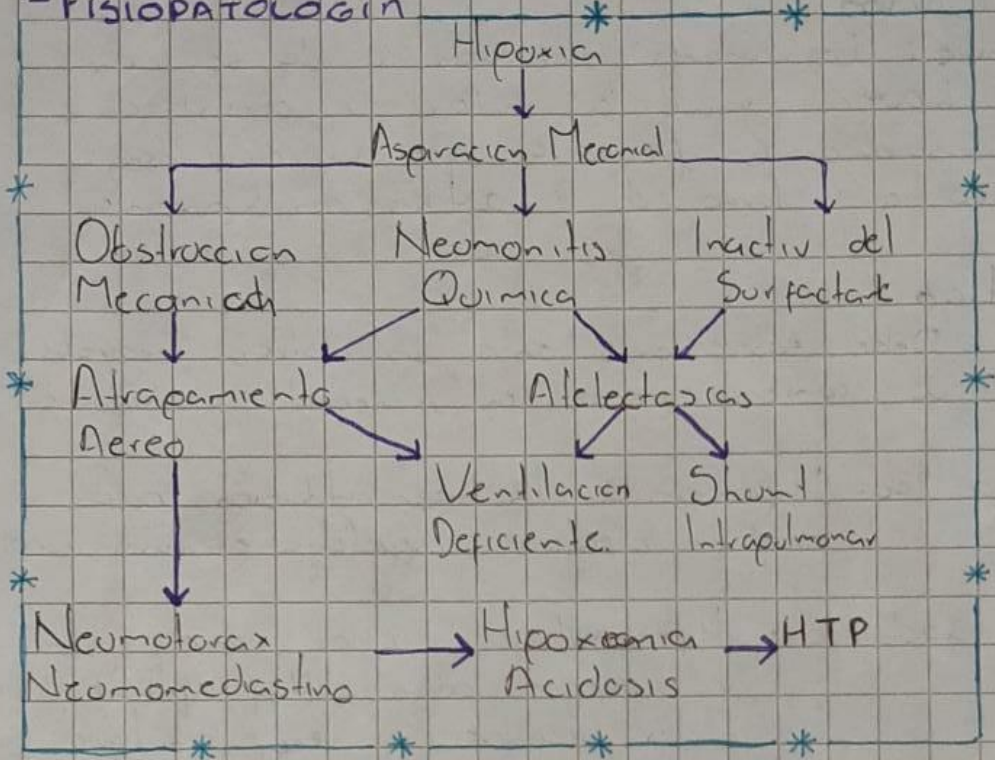 - FISIOPATOLOGIA
Hipoxia
Aspiracion Meconial
Obstruccion
Mecanicah
Neomonitis
Quimica
Inactiv del
Surfactate
Atrapamiento
Aereo
Atelectasias
Ventilacion
Deficiente.
Shunt
Intrapulmonar
Neumotorax
Neumomediastino
Hipoxemia
Acidosis
HTP